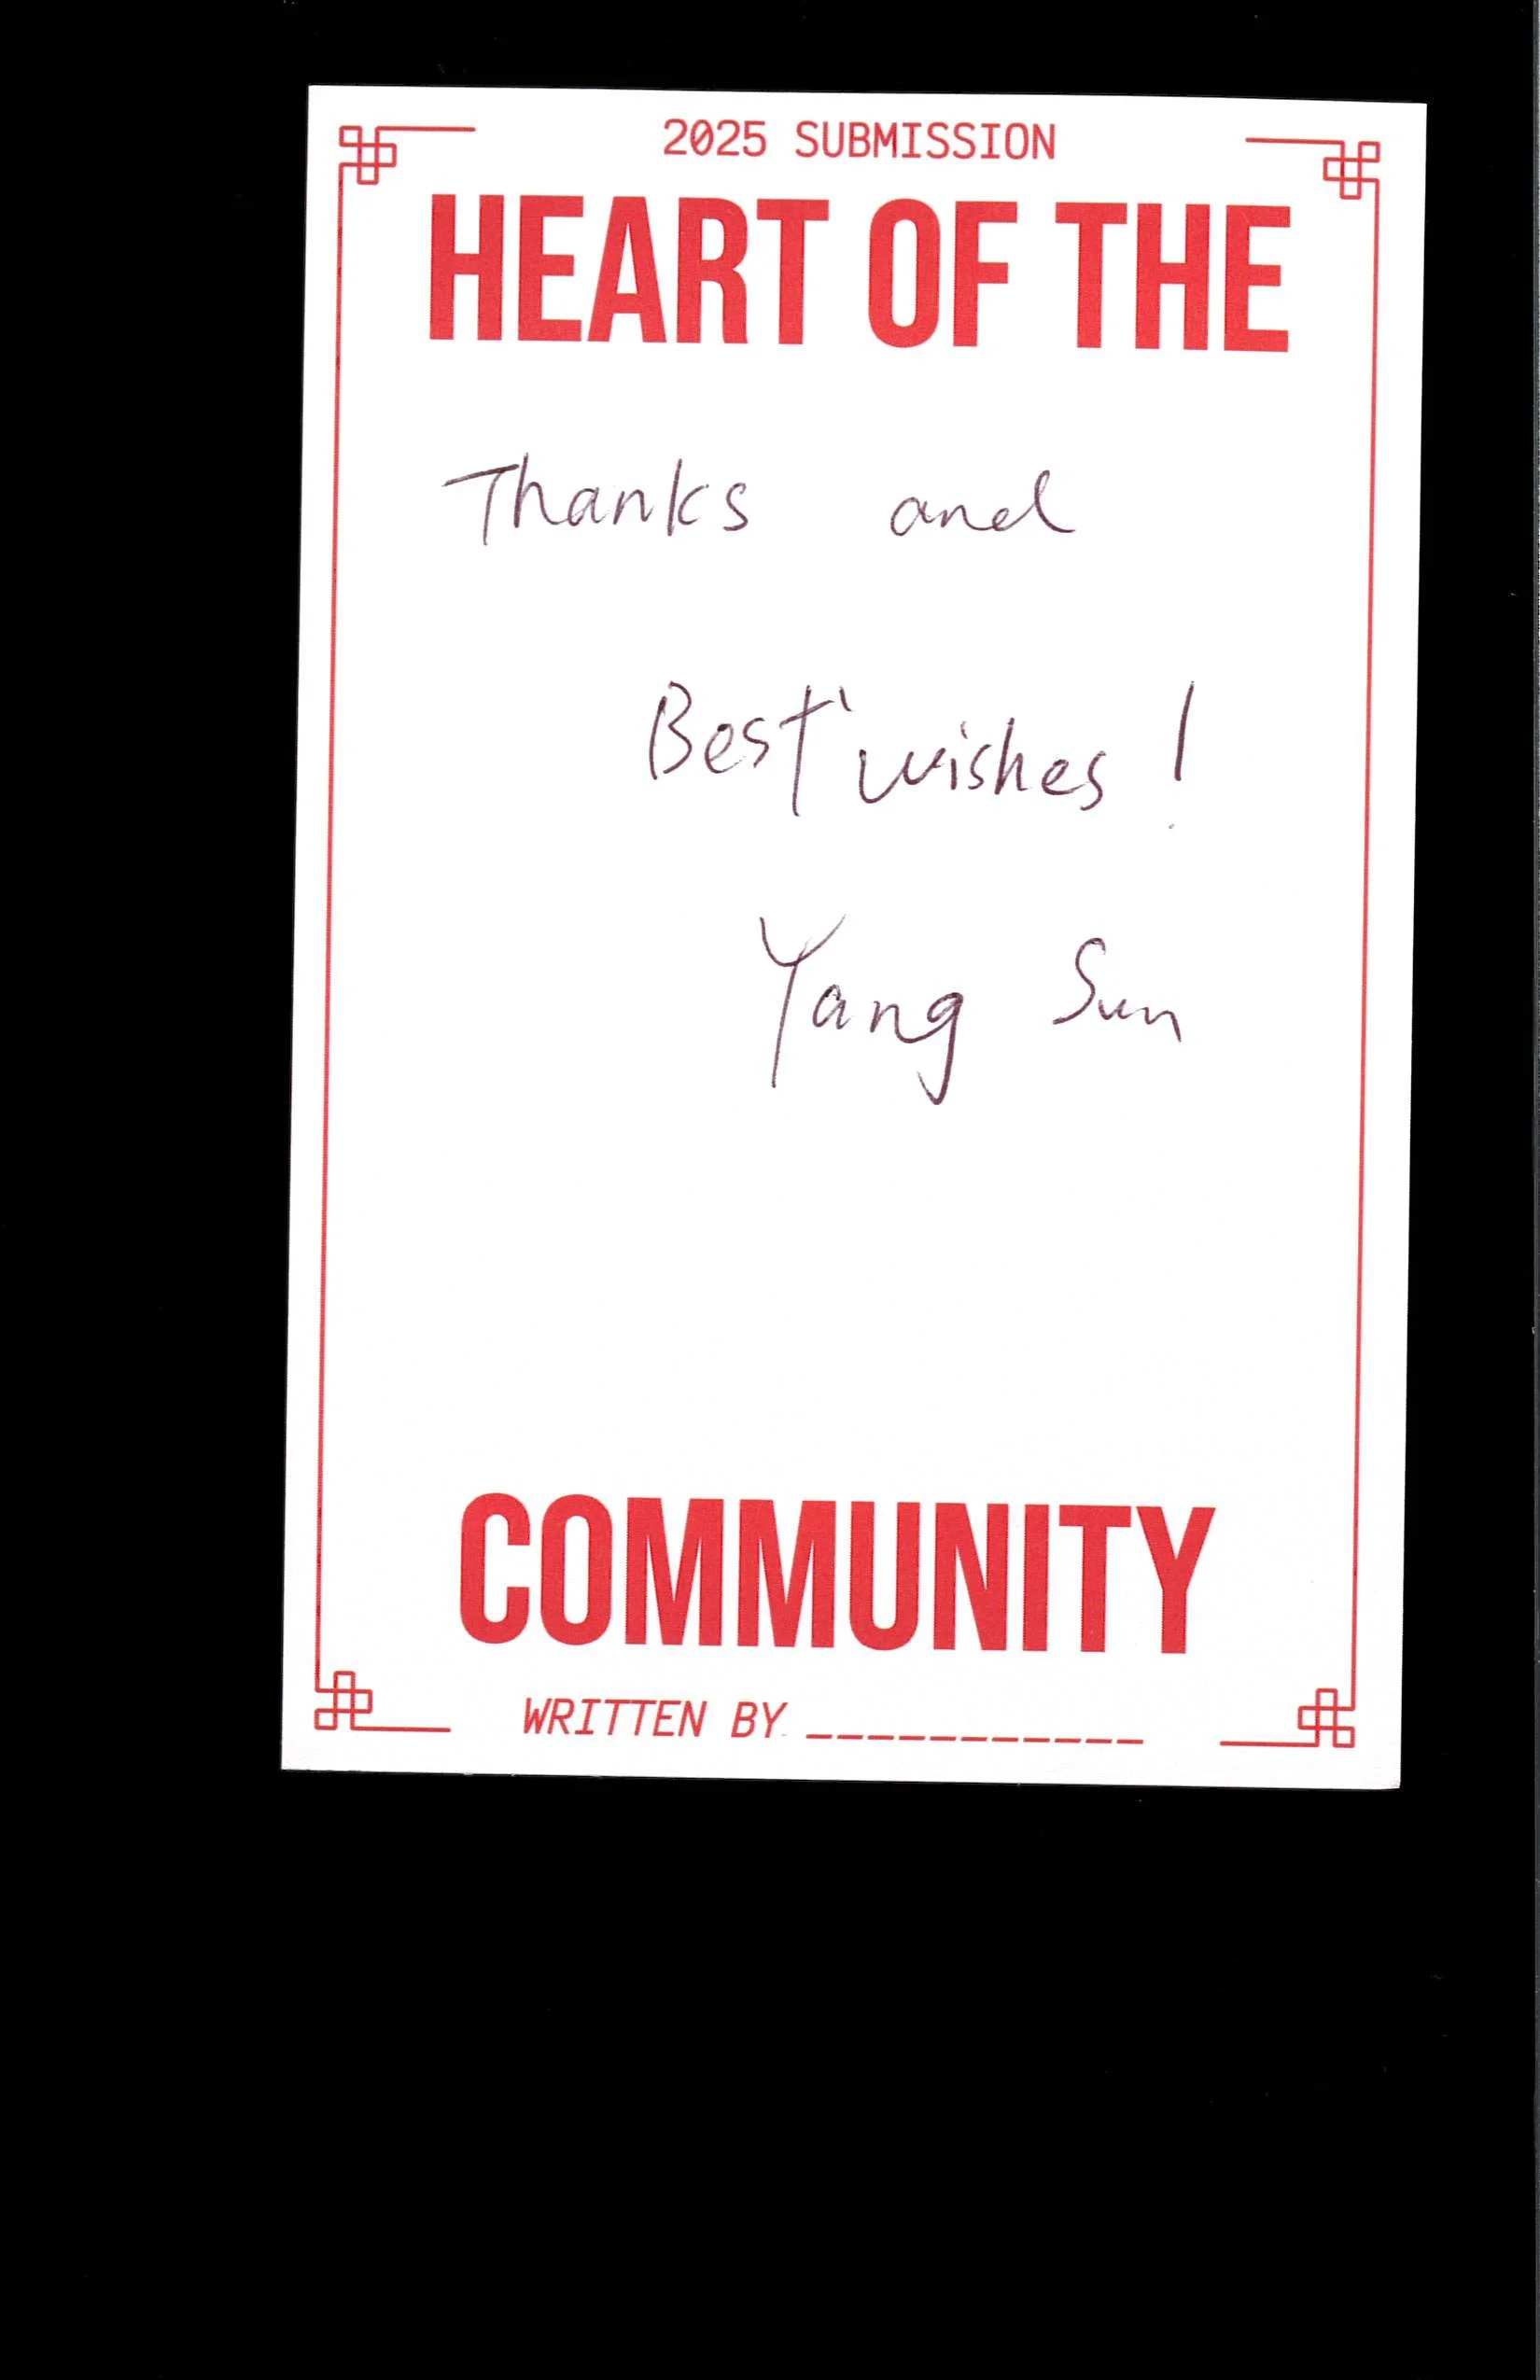 2025 SUBMISSION
HEART OF THE
Thanks and
Best wishes!
Yang Sun
COMMUNITY
WRITTEN BY ____________